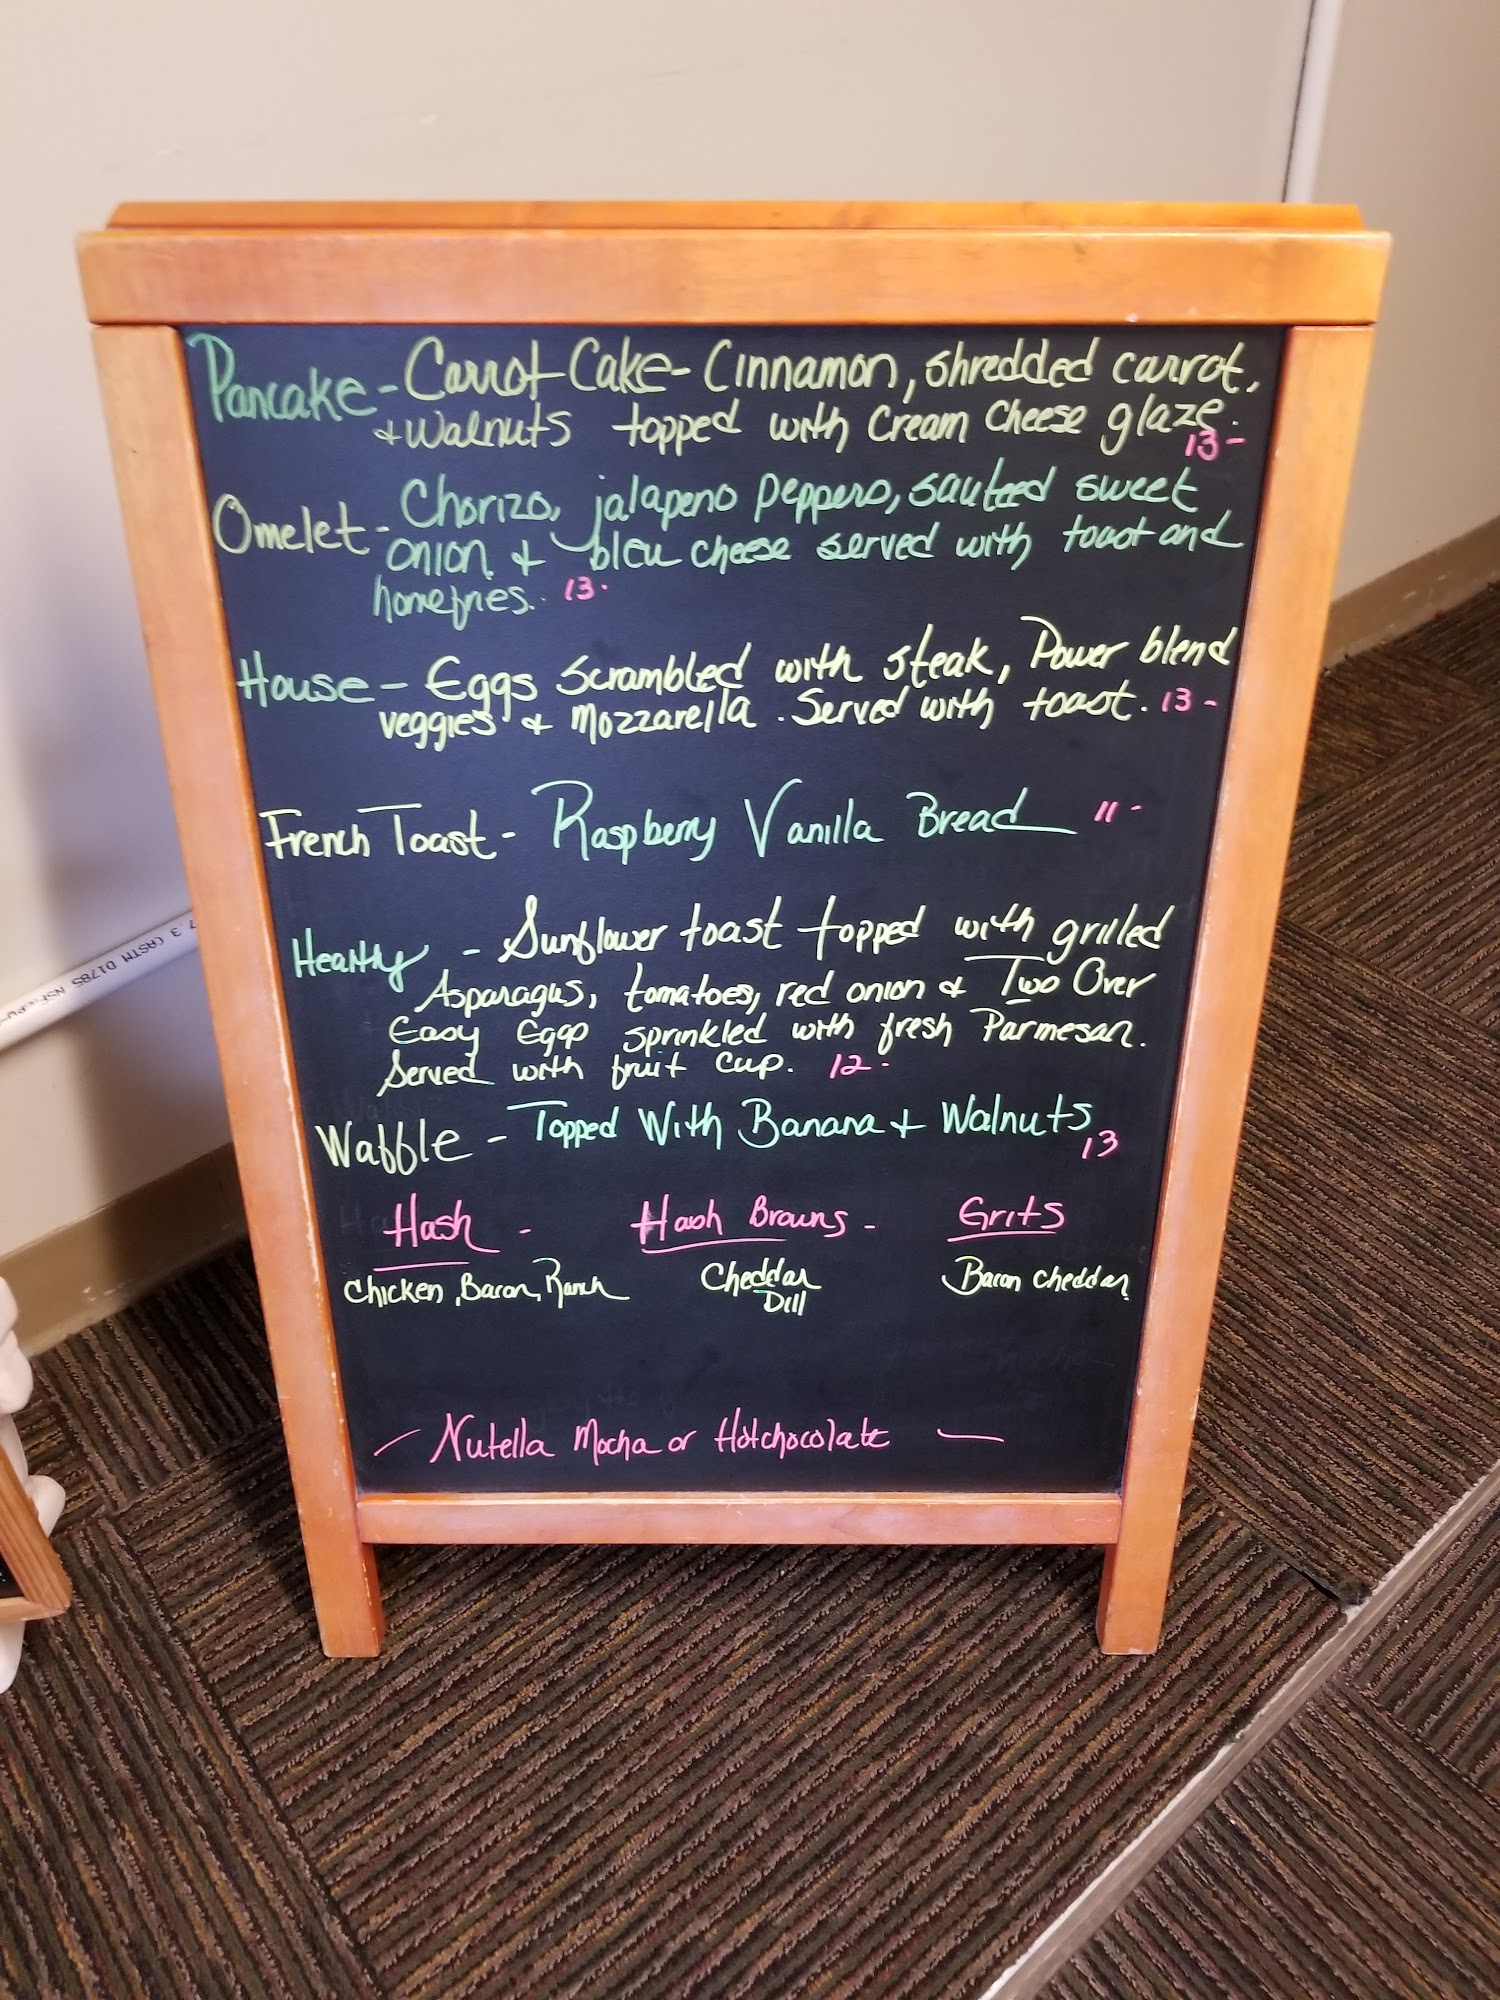 Pancake - Carrot Cake - Cinnamon, shredded carrot,
+ Walnuts topped with Cream Cheese glaze.
13 -
Omelet - Chorizo, jalapeno peppers, sauteed sweet
onion & bleu cheese served with toast and
homefries. 13 -
House - Eggs scrambled with steak, Power blend
veggies & Mozzarella. Served with toast. 13 -
French Toast - Raspberry Vanilla Bread 11 -
Healthy - Sunflower toast topped with grilled
Asparagus, tomatoes, red onion & Two Over
Easy Eggs sprinkled with fresh Parmesan.
Served with fruit cup. 12 -
Waffle - Topped With Banana + Walnuts
13
Hash - Hash Browns - Grits
Chicken, Bacon, Ranch Cheddar Bacon Cheddar
Dill
- Nutella Mocha or Hotchocolate -
7.3 (ASTM D1785 NSF